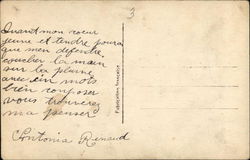 3
Quand mon coeur
jeune et tendre pourra
que m'en défendre
coucher la main
sur la plume
avec six mots
bien composer
vous trouverez
ma penser
Antonia Renaud
Publication française